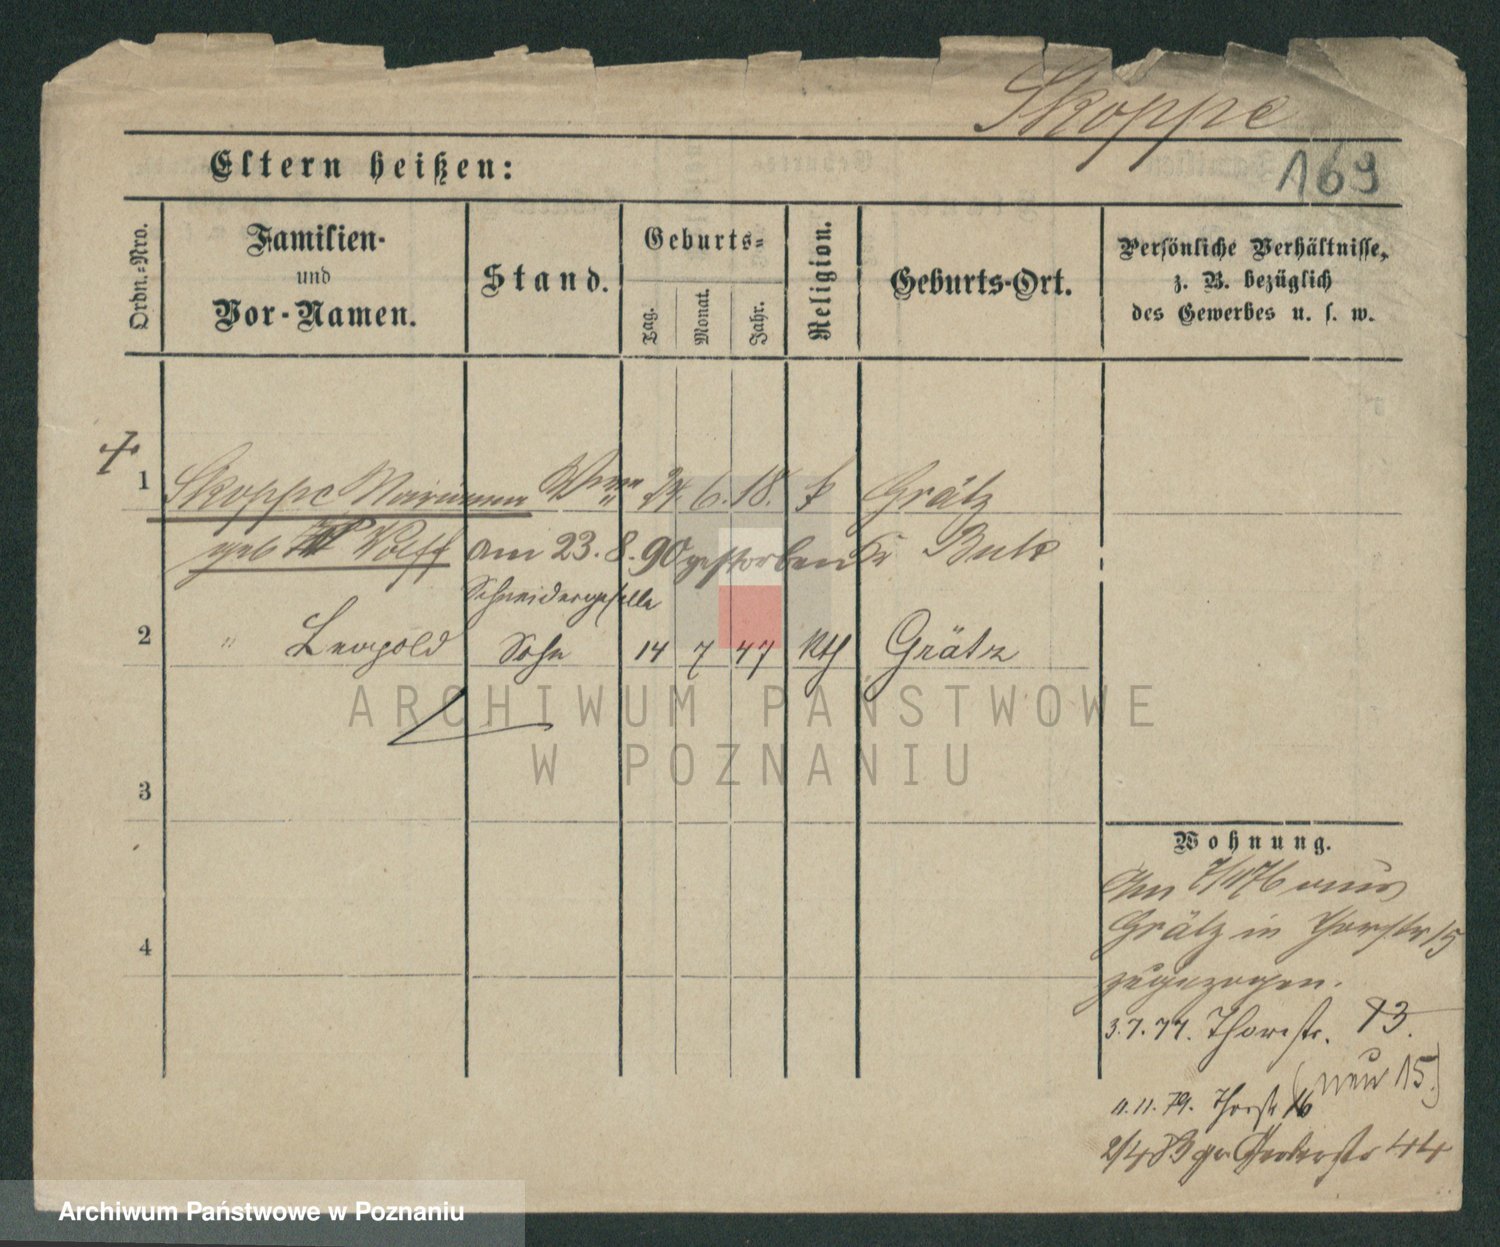 Skoppe
169
Eltern heißen:
Ordn.=Nro.
Familien-
und
Vor-Namen.
Stand.
Geburts=
Tag.
Monat.
Jahr.
Religion.
Geburts-Ort.
Persönliche Verhältnisse,
z. B. bezüglich
des Gewerbes u. s. w.
1 Skoppe Marianna 24. 6. 18. k Grätz
geb Wolff am 23. 8. 90 gestorben Kr Buk
Schneidergeselle
2 " Leopold Sohn 14 7 47 kth Grätz
ARCHIWUM PAŃSTWOWE
W POZNANIU
3
4
Wohnung.
Am 7/11 76 aus
Grätz in Thorstr 15
zugezogen.
3. 7. 77. Thorstr. 13.
(neu 15)
11. 11. 79. Thorstr 16
2/4 83 gr Gerberstr 44
Archiwum Państwowe w Poznaniu